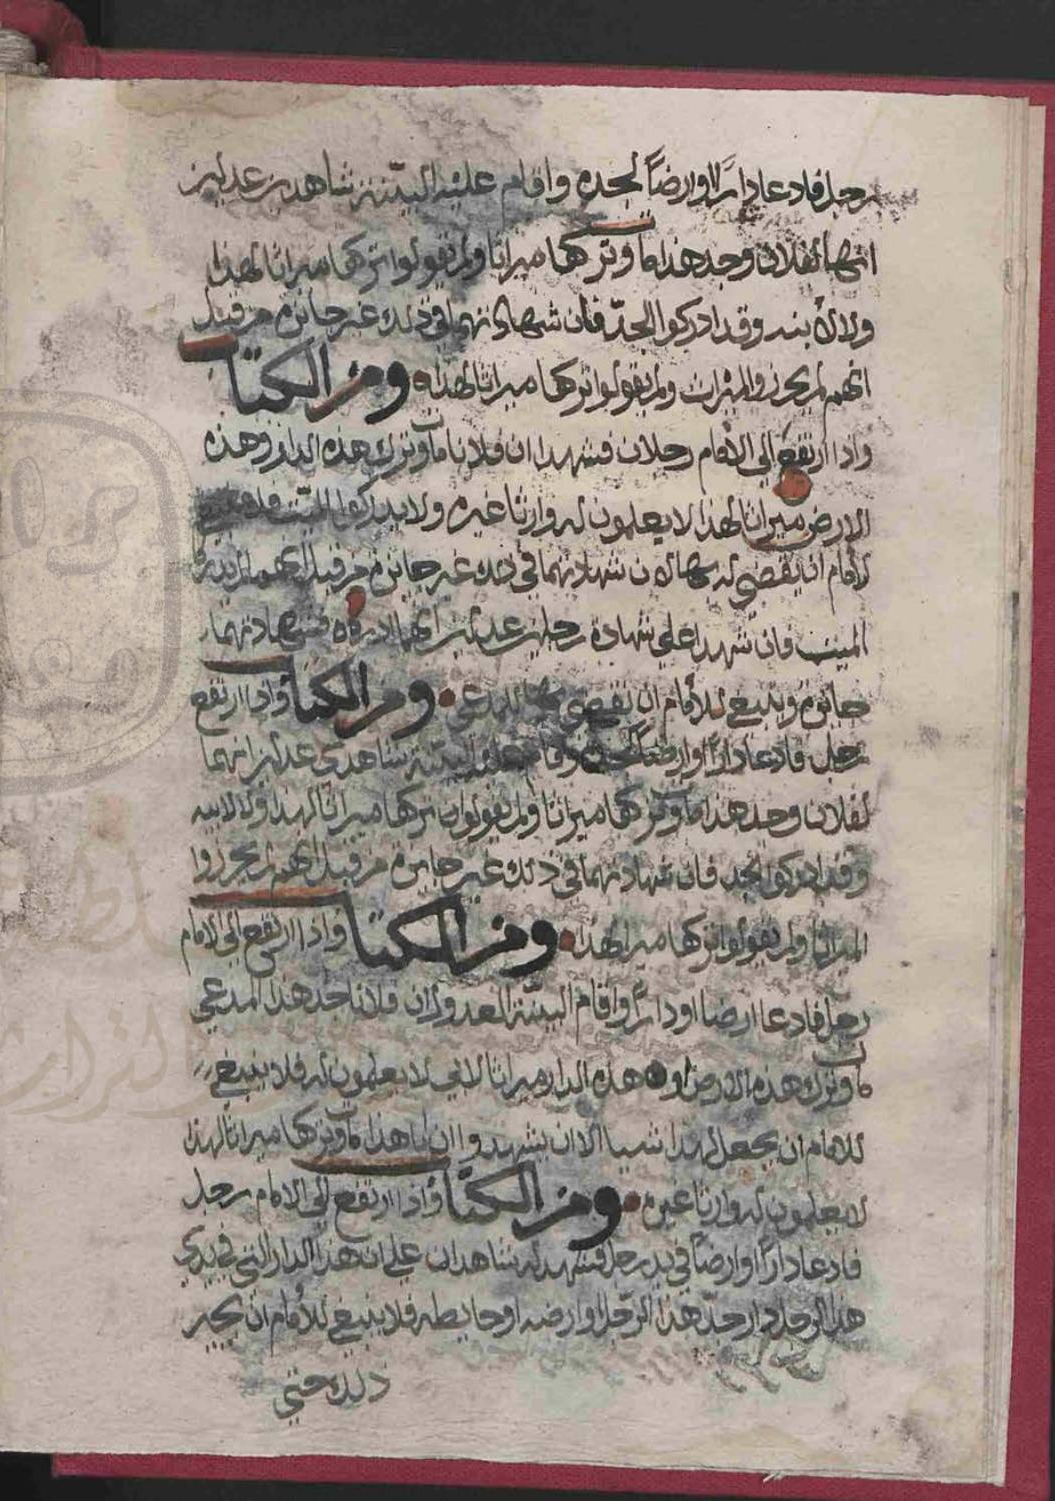 رجل فادعا دارًا او ارضًا لجده واقام عليه البيّنة شاهدين عدلين
انها لفلان وجد هذا مات وتركها ميراثا ولم يقولوا تركها ميراثا لهذا
ولا لابنه وقد ادركوا الجدّ فان شهادتهما في ذلك غير جائزه من قبل
انهم لم يحرزوا الميراث ولم يقولوا تركها ميراثا لهذا ومن الكتاب
واذا ارتفع الى الامام رجلان فشهدا ان فلانا مات وترك هذه الدار وهذه
الارض ميراثا لهذا لا يعلمون له وارثا غيره ولا يدركوا الميّت فلا ينبغي
للامام ان يقضي له بها لان شهادتهما في ذلك غير جائزه من قبل انهما لم يدركا
الميت فان شهدا على شهادة رجلين عدلين انهما ادركاه فشهادتهما
جائزه وينبغي للامام ان يقضي بها للمدعي ومن الكتاب واذا ارتفع
رجل فادعا دارًا او ارضًا لجده واقام عليه البيّنة شاهدي عدلين انهما
لفلان وجد هذا مات وتركها ميراثا ولم يقولوا تركها ميراثا لهذا ولا لابيه
وقد ادركوا الجد فان شهادتهما في ذلك غير جايزه من قبل انهم لم يحرزوا
الميراثا ولم يقولوا تركها ميرا لهذا ومن الكتاب واذا ارتفع الى الامام
رجل فادعا ارضا او دارًا واقام البيّنة العدول ان فلانا جد هذا المدعي
مات وترك هذه الارض او هذه الدار ميراثا لابي لا يعلمون له فلا ينبغي
للامام ان يجعل لهذا شيا الا ان يشهدوا ان ابا هذا مات وتركها ميراثا لهذا
لا يعلمون له وارثا غيره ومن الكتاب واذا ارتفع الى الامام رجل
فادعا دارًا او ارضًا في يد رجل فشهد له شاهدان على ان هذا الدار التي في يدي
هذا الرجل دار جدّ هذا الرجل او ارضه او حايطه فلا ينبغي للامام ان يجيز
ذلك حتى